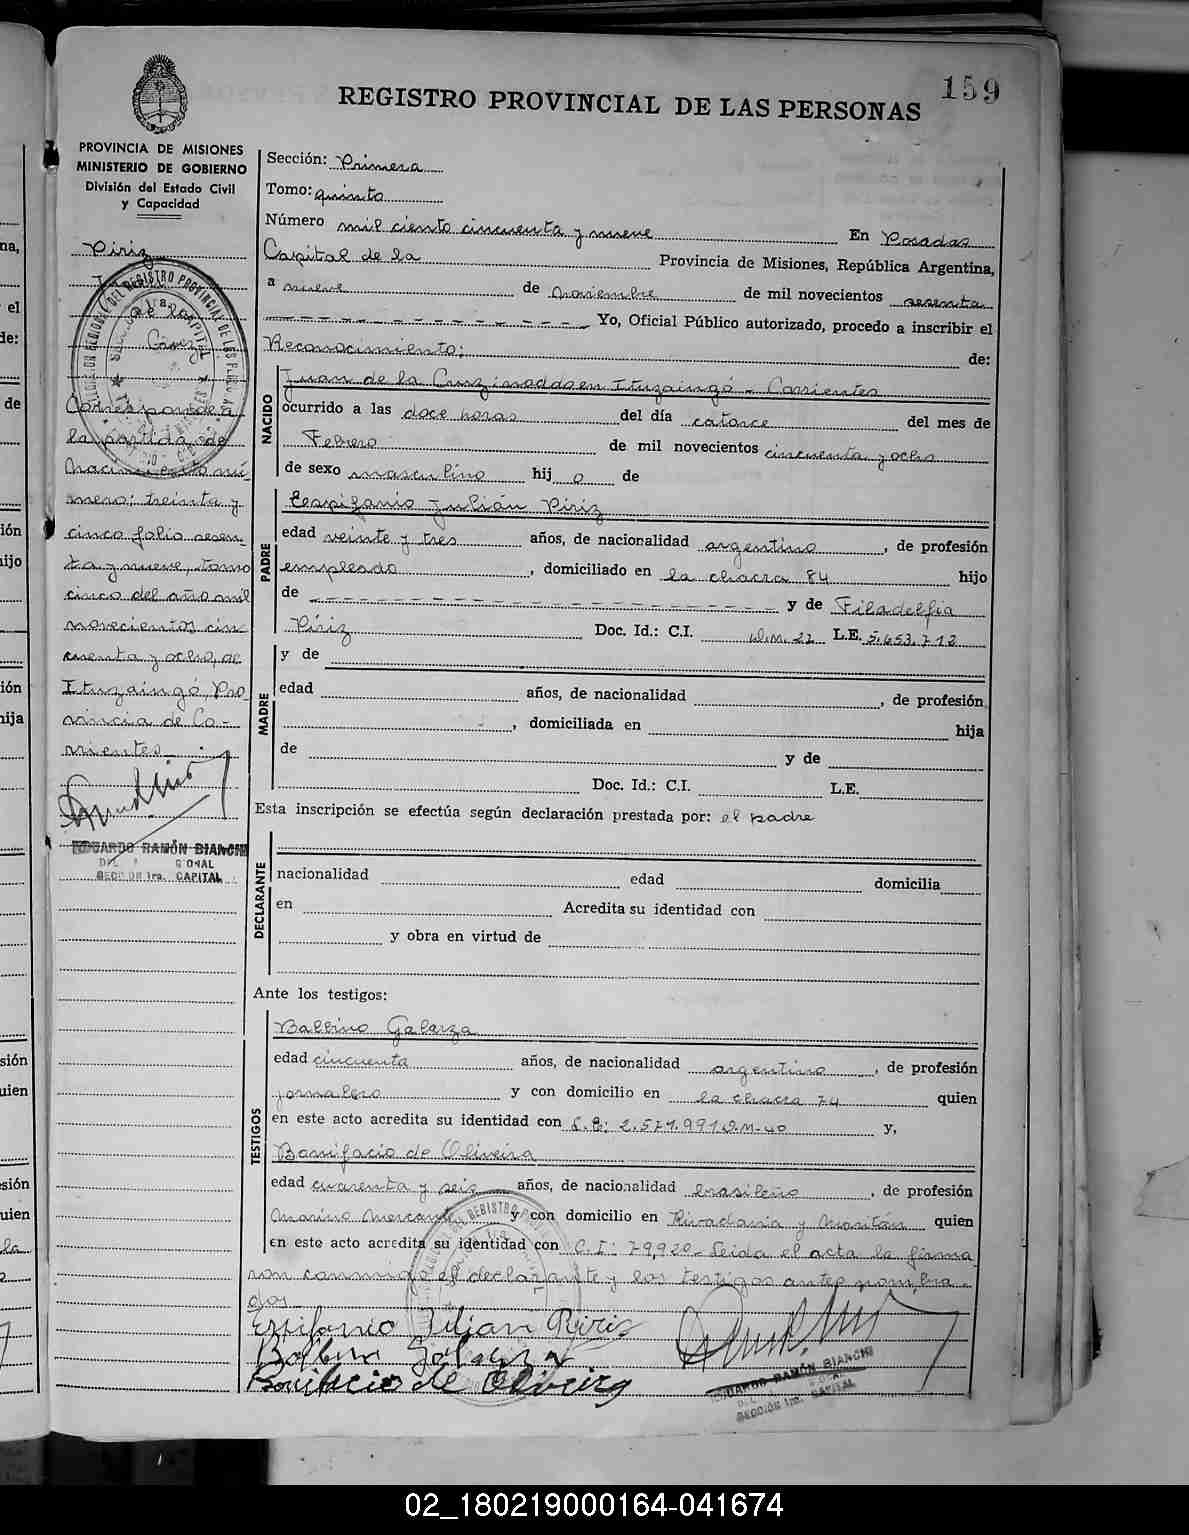 159
REGISTRO PROVINCIAL DE LAS PERSONAS
PROVINCIA DE MISIONES
MINISTERIO DE GOBIERNO
División del Estado Civil
y Capacidad
Piriz
Juan
de la
Cruz
Corresponde a
la partida de
Nacimiento nú-
mero; treinta y
cinco folio sesen-
ta y nueve, tomo
cinco del año mil
novecientos cin-
cuenta y ocho, de
Ituzaingó, Pro
vincia de Co-
rrientes
EDUARDO RAMÓN BIANCHI
SECCIÓN 1ra. CAPITAL
Sección: Primera
Tomo: quinto
Número mil ciento cincuenta y nueve En Posadas
Capital de la Provincia de Misiones, República Argentina,
a nueve de noviembre de mil novecientos sesenta
Yo, Oficial Público autorizado, procedo a inscribir el
Reconocimiento: de:
NACIDO
Juan de la Cruz; inaddo en Ituzaingó - Corrientes
ocurrido a las doce horas del día catorce del mes de
Febrero de mil novecientos cincuenta y ocho
de sexo masculino hij o de
PADRE
Eespifanio Julián Piriz
edad veinte y tres años, de nacionalidad argentino, de profesión
empleado, domiciliado en la chacra 84 hijo
de y de Filadelfia
Piriz Doc. Id.: C.I. D.M. 27 L.E. 5.653.712
MADRE
y de
edad años, de nacionalidad, de profesión
, domiciliada en hija
de y de
Doc. Id.: C.I. L.E.
Esta inscripción se efectúa según declaración prestada por: el padre
DECLARANTE
nacionalidad edad domicilia
en Acredita su identidad con
y obra en virtud de
Ante los testigos:
TESTIGOS
Balbino Galarza
edad cincuenta años, de nacionalidad argentino, de profesión
jornalero y con domicilio en la chacra 74 quien
en este acto acredita su identidad con L.E: 2.571.991 D.M-40 y,
Bonifacio de Oliveira
edad cuarenta y seis años, de nacionalidad brasileño, de profesión
Marino Mercante y con domicilio en Rivadavia y quien
en este acto acredita su identidad con C.I: 79,920- Leida el acta la firma
ron conmigo el declarante y los testigos antes nombra-
dos
Epifanio Julian Piriz
Balbino Galarza
Bonifacio de Oliveira
EDUARDO RAMÓN BIANCHI
SECCIÓN 1ra. CAPITAL
02_180219000164-041674